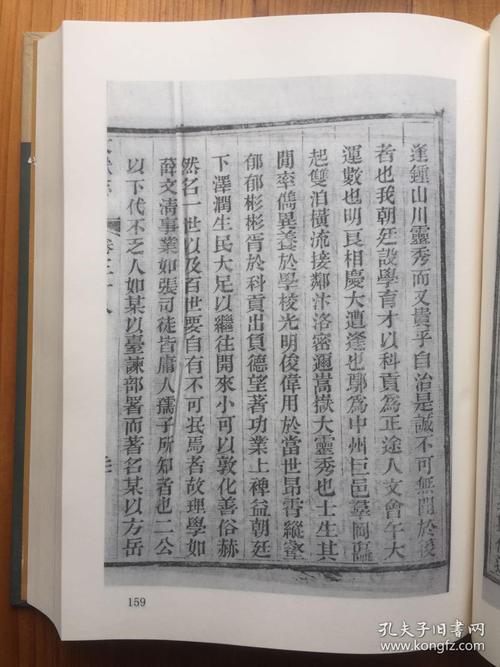 逢鍾山川靈秀而又貴乎自治是誠不可無聞於後
者也我朝廷設學育才以科貢爲正途人文會午大
運數也明良相慶大遭逢也鄢爲中州巨邑羣岡
起雙洎橫流接鄰汴洛密邇嵩嶽大靈秀也士生其
間率儁異養於學校光明俊偉用於當世昂霄縱壑
郁郁彬彬胥於科貢出負德望著功業上裨益朝廷
下澤潤生民大足以繼往開來小可以敦化善俗赫
然名一世以及百世要自有不可泯焉者故理學如
薛文清事業如張司徒皆庸人孺子所知者也二公
以下代不乏人如某以臺諫部署而著名某以方岳
159
孔夫子旧书网
www.kongfz.com